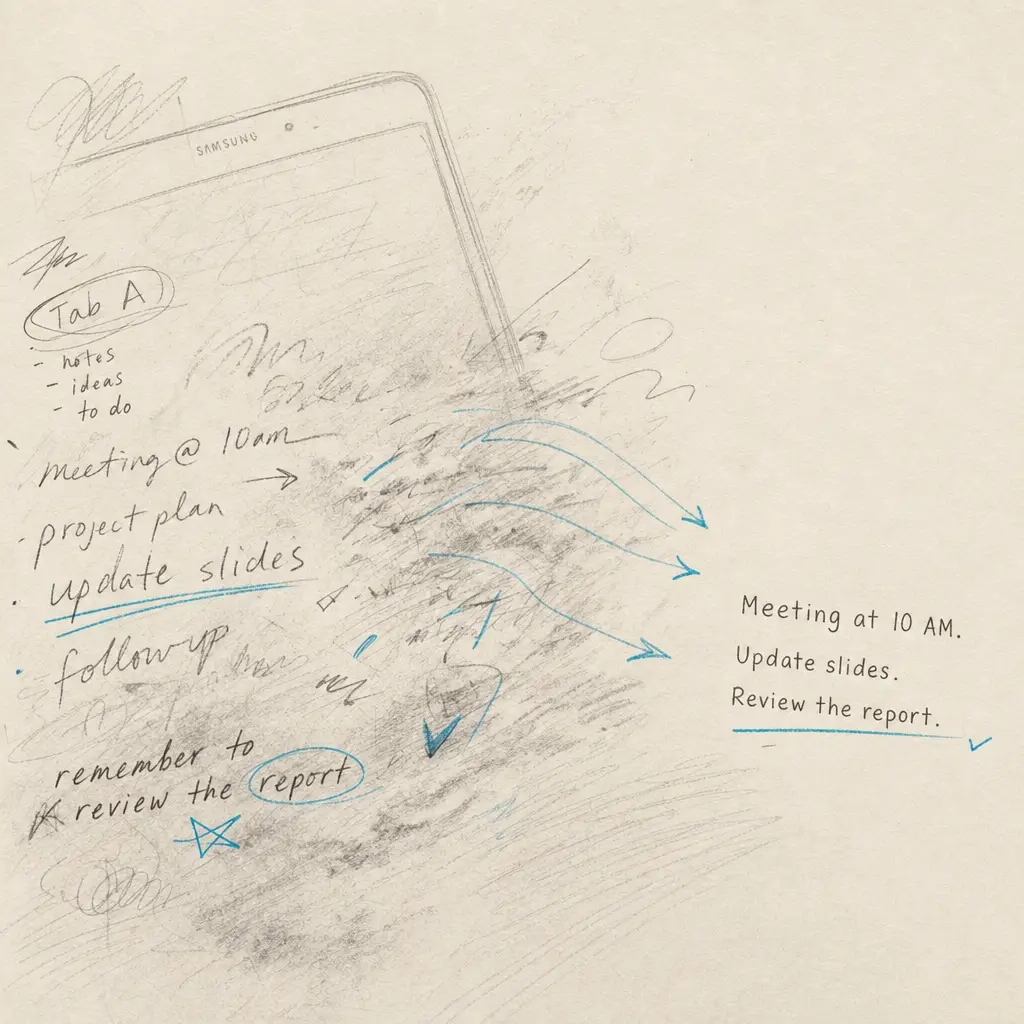 SAMSUNG
Tab A
- notes
- ideas
- to do
meeting @ 10am
project plan
update slides
followup
remember to
review the report
Meeting at 10 AM.
Update slides.
Review the report.